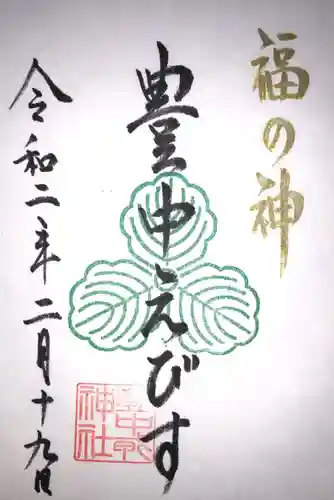 福の神
豊中えびす
令和二年二月十九日
神社